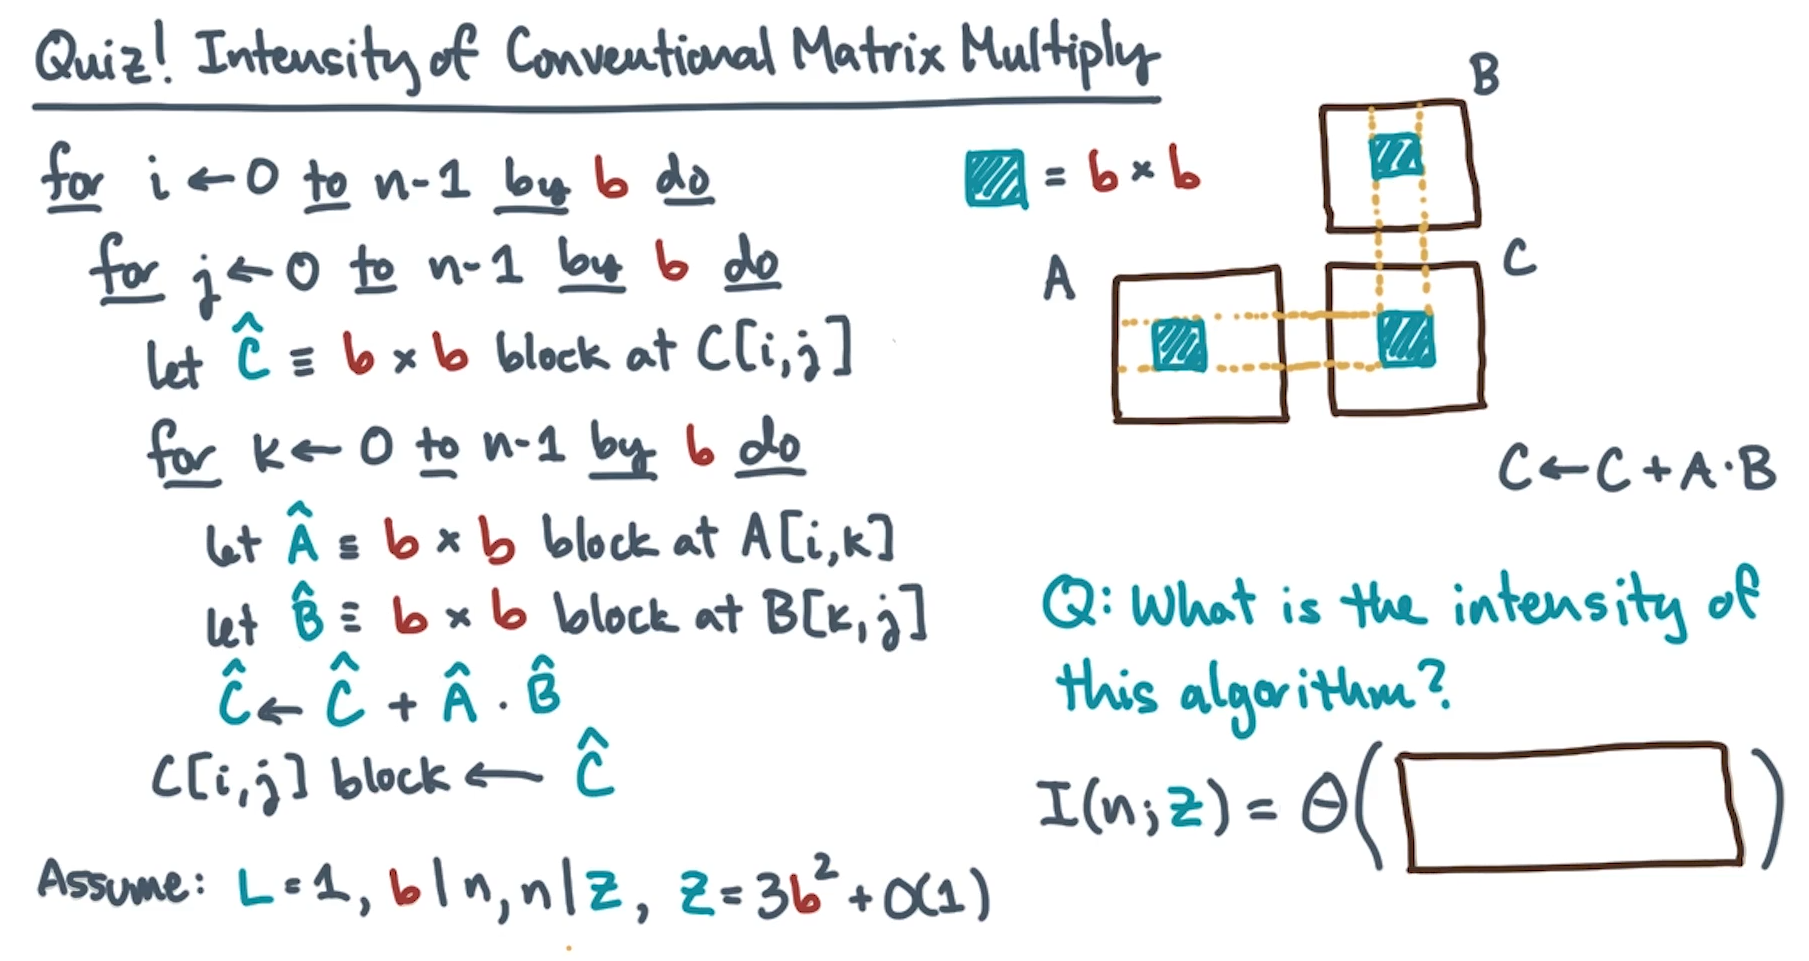 Quiz! Intensity of Conventional Matrix Multiply
for i ← 0 to n-1 by b do
for j ← 0 to n-1 by b do
let Ĉ ≡ b × b block at C[i,j]
for k ← 0 to n-1 by b do
let Â ≡ b × b block at A[i,k]
let B̂ ≡ b × b block at B[k,j]
Ĉ ← Ĉ + Â · B̂
C[i,j] block ← Ĉ
Assume: L=1, b|n, n|Z, Z = 3b² + O(1)
= b × b
B
A
C
C ← C + A·B
Q: What is the intensity of
this algorithm?
I(n; Z) = Θ( )